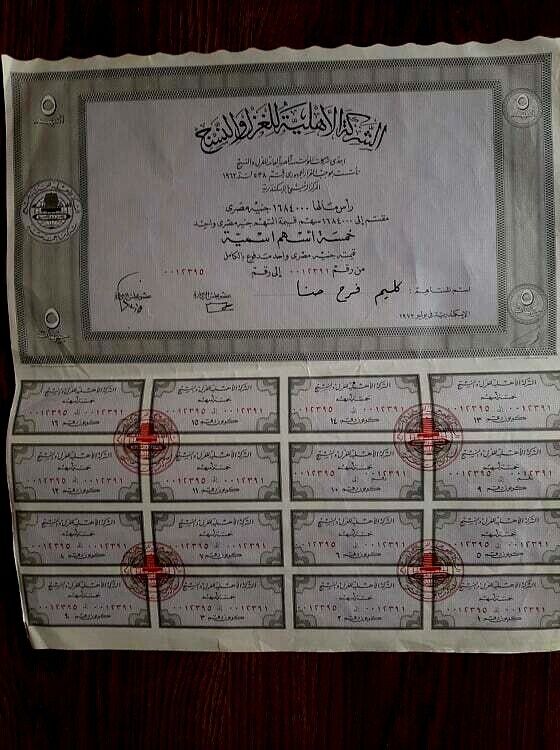 الشركة الأهلية للغزل والنسج
إحدى شركات المؤسسة المصرية العامة للغزل والنسج
تأسست بموجب القرار الجمهوري رقم ٥٣٨ لسنة ١٩٦٣
المركز الرئيسي الإسكندرية
رأس مالها ١٦٨٤٠٠٠ جنيه مصري
مقسم إلى ١٦٨٤٠٠٠ سهم قيمة السهم جنيه مصري واحد
خمسة أسهم اسمية
قيمته جنيه مصري واحد مدفوع بالكامل
من رقم ٠٠١٢٣٩١ إلى رقم ٠٠١٢٣٩٥
اسم المساهم: كليم فرح حنا
الإسكندرية في يوليو
الشركة الأهلية للغزل والنسج
خمسة أسهم
٠٠١٢٣٩١ إلى ٠٠١٢٣٩٥
كوبون رقم ١٣
الشركة الأهلية للغزل والنسج
خمسة أسهم
٠٠١٢٣٩١ إلى ٠٠١٢٣٩٥
كوبون رقم ١٤
الشركة الأهلية للغزل والنسج
خمسة أسهم
٠٠١٢٣٩١ إلى ٠٠١٢٣٩٥
كوبون رقم ١٥
الشركة الأهلية للغزل والنسج
خمسة أسهم
٠٠١٢٣٩١ إلى ٠٠١٢٣٩٥
كوبون رقم ١٦
الشركة الأهلية للغزل والنسج
خمسة أسهم
٠٠١٢٣٩١ إلى ٠٠١٢٣٩٥
كوبون رقم ٩
الشركة الأهلية للغزل والنسج
خمسة أسهم
٠٠١٢٣٩١ إلى ٠٠١٢٣٩٥
كوبون رقم ١٠
الشركة الأهلية للغزل والنسج
خمسة أسهم
٠٠١٢٣٩١ إلى ٠٠١٢٣٩٥
كوبون رقم ١١
الشركة الأهلية للغزل والنسج
خمسة أسهم
٠٠١٢٣٩١ إلى ٠٠١٢٣٩٥
كوبون رقم ١٢
الشركة الأهلية للغزل والنسج
خمسة أسهم
٠٠١٢٣٩١ إلى ٠٠١٢٣٩٥
كوبون رقم ٥
الشركة الأهلية للغزل والنسج
خمسة أسهم
٠٠١٢٣٩١ إلى ٠٠١٢٣٩٥
كوبون رقم ٦
الشركة الأهلية للغزل والنسج
خمسة أسهم
٠٠١٢٣٩١ إلى ٠٠١٢٣٩٥
كوبون رقم ٧
الشركة الأهلية للغزل والنسج
خمسة أسهم
٠٠١٢٣٩١ إلى ٠٠١٢٣٩٥
كوبون رقم ٨
الشركة الأهلية للغزل والنسج
خمسة أسهم
٠٠١٢٣٩١ إلى ٠٠١٢٣٩٥
كوبون رقم ١
الشركة الأهلية للغزل والنسج
خمسة أسهم
٠٠١٢٣٩١ إلى ٠٠١٢٣٩٥
كوبون رقم ٢
الشركة الأهلية للغزل والنسج
خمسة أسهم
٠٠١٢٣٩١ إلى ٠٠١٢٣٩٥
كوبون رقم ٣
الشركة الأهلية للغزل والنسج
خمسة أسهم
٠٠١٢٣٩١ إلى ٠٠١٢٣٩٥
كوبون رقم ٤